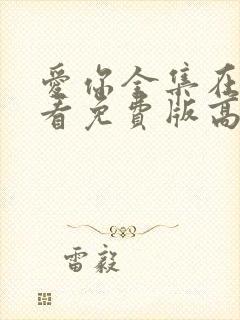 愛你全集在
看免費版高
雷毅